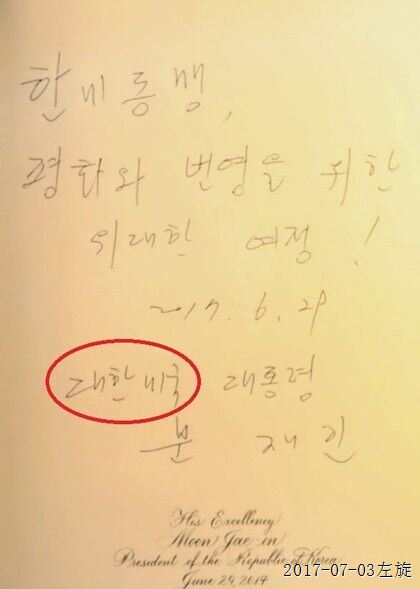 한미동맹,
평화와 번영을 위한
위대한 여정!
2017. 6. 29
대한미국 대통령
문 재 인
His Excellency
Moon Jae in
President of the Republic of Korea
June 29, 2017
2017-07-03左旋